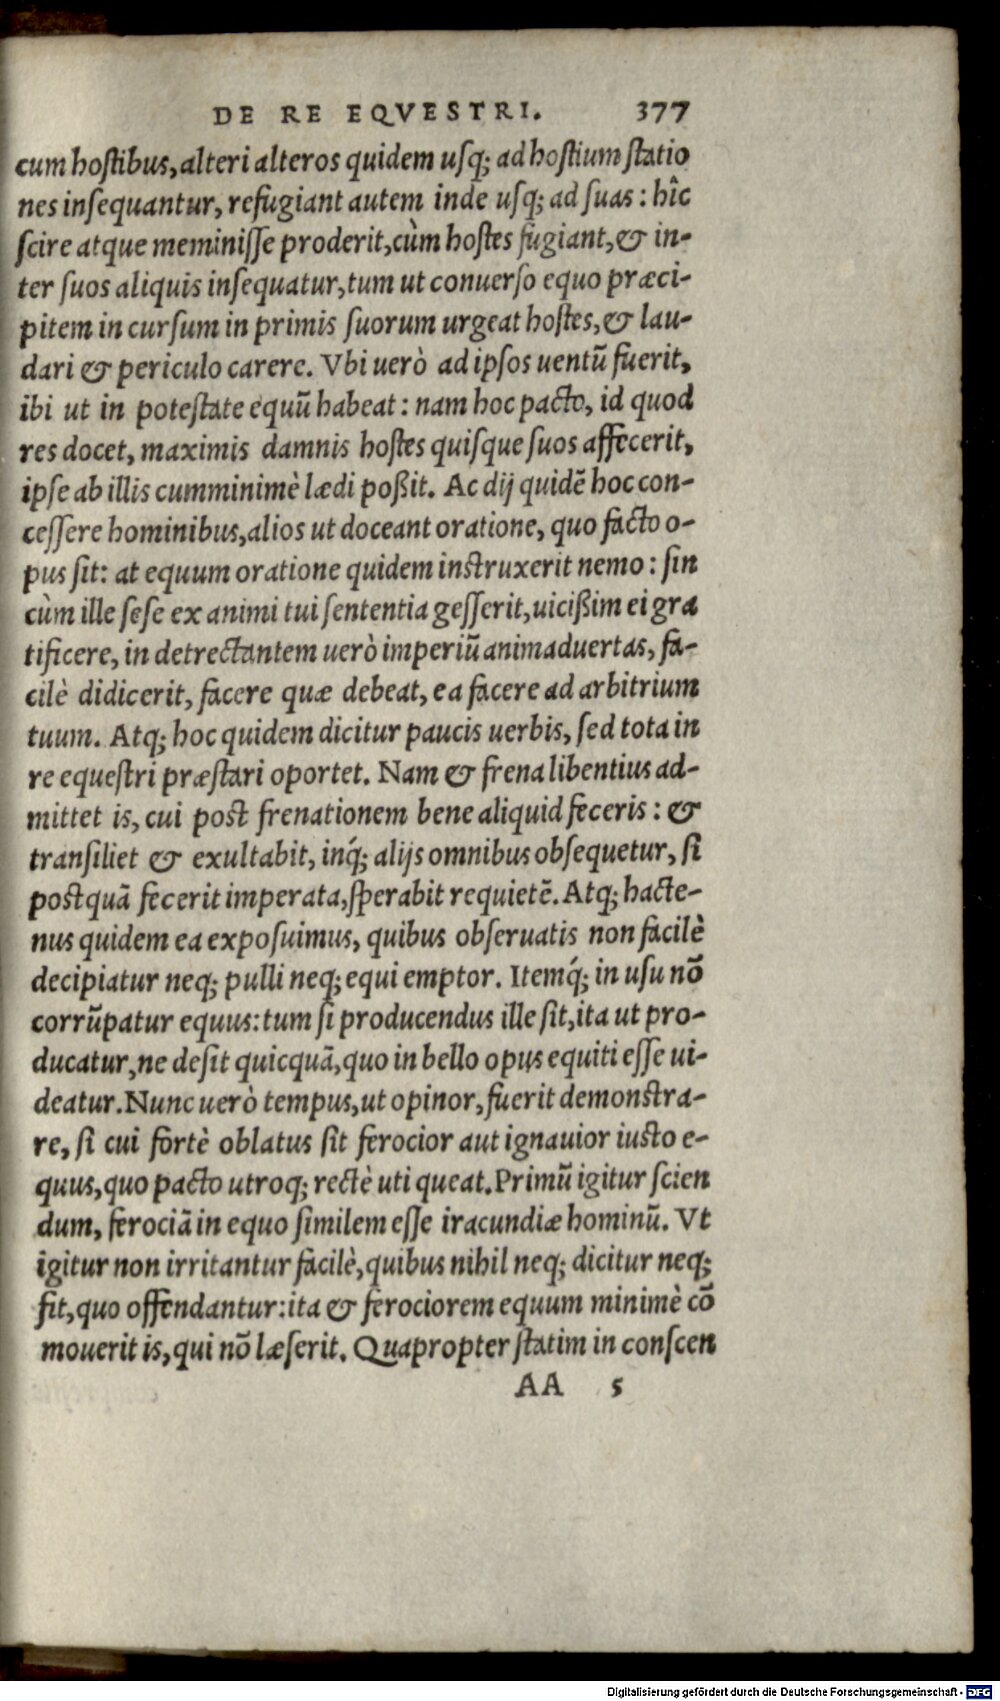 DE RE EQVESTRI. 377
cum hostibus, alteri alteros quidem usq; ad hostium statio
nes insequantur, refugiant autem inde usq; ad suas: hîc
scire atque meminisse proderit, cùm hostes fugiant, & in-
ter suos aliquis insequatur, tum ut conuerso equo præci-
pitem in cursum in primis suorum urgeat hostes, & lau-
dari & periculo carere. Vbi uerò ad ipsos uentũ fuerit,
ibi ut in potestate equũ habeat: nam hoc pacto, id quod
res docet, maximis damnis hostes quisque suos affecerit,
ipse ab illis cumminimè lædi poßit. Ac dij quidẽ hoc con-
cessere hominibus, alios ut doceant oratione, quo facto o-
pus sit: at equum oratione quidem instruxerit nemo: sin
cùm ille sese ex animi tui sententia gesserit, uicißim ei gra
tificere, in detrectantem uerò imperiũ animaduertas, fa-
cilè didicerit, facere quæ debeat, ea facere ad arbitrium
tuum. Atq; hoc quidem dicitur paucis uerbis, sed tota in
re equestri præstari oportet. Nam & frena libentius ad-
mittet is, cui post frenationem bene aliquid feceris: &
transiliet & exultabit, inq́; alijs omnibus obsequetur, si
postquã fecerit imperata, sperabit requietẽ. Atq; hacte-
nus quidem ea exposuimus, quibus obseruatis non facilè
decipiatur neq; pulli neq; equi emptor. Itemq́; in usu nõ
corrũpatur equus: tum si producendus ille sit, ita ut pro-
ducatur, ne desit quicquã, quo in bello opus equiti esse ui-
deatur. Nunc uerò tempus, ut opinor, fuerit demonstra-
re, si cui fortè oblatus sit ferocior aut ignauior iusto e-
quus, quo pacto utroq; rectè uti queat. Primũ igitur scien
dum, ferociã in equo similem esse iracundiæ hominũ. Vt
igitur non irritantur facilè, quibus nihil neq; dicitur neq;
fit, quo offendantur: ita & ferociorem equum minimè cõ
mouerit is, qui nõ læserit. Quapropter statim in conscen
AA 5
Digitalisierung gefördert durch die Deutsche Forschungsgemeinschaft - DFG